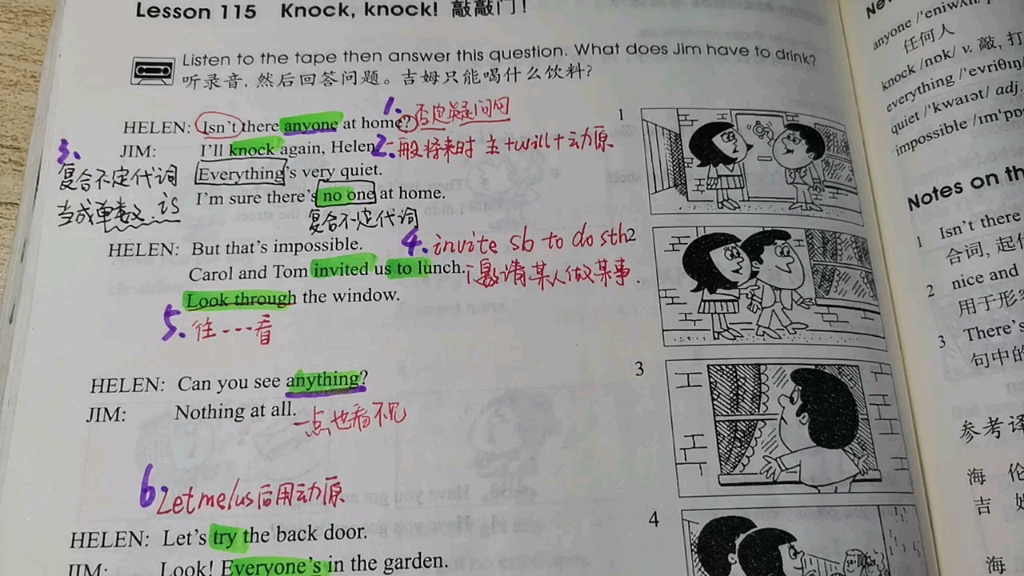 Lesson 115 Knock, knock! 敲敲门！
Listen to the tape then answer this question. What does Jim have to drink?
听录音，然后回答问题。吉姆只能喝什么饮料？
1. 否定疑问句
HELEN: Isn't there anyone at home?
2. 一般将来时 主+will+动原
JIM: I'll knock again, Helen.
Everything's very quiet.
I'm sure there's no one at home.
3. 复合不定代词
当成单数 is
复合不定代词
HELEN: But that's impossible.
4. invite sb to do sth
Carol and Tom invited us to lunch.
邀请某人做某事.
Look through the window.
5. 往...看
HELEN: Can you see anything?
JIM: Nothing at all.
一点也看不见
6. Let me/us后用动原
HELEN: Let's try the back door.
JIM: Look! Everyone's in the garden.
1
2
3
4
anyone
任何人
knock /nɒk/ v. 敲，打
everything /'evriθɪŋ/
quiet /'kwaɪət/ adj.
impossible
Notes on th
1 Isn't there
合词，起
2 nice and
用于形
3 There's
句中的
参考译
海 伦
吉 姆
海